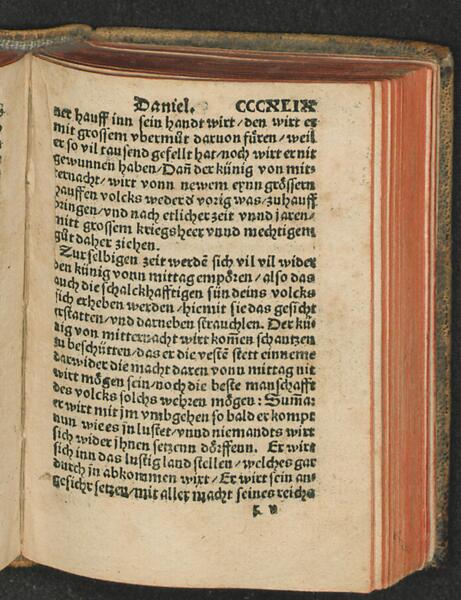 Daniel. CCCXLIX
ner hauff inn sein handt wirt/den wirt er
mit grossem vbermůt daruon fůren/weil
er so vil tausend gefellt hat/noch wirt er nit
gewunnen haben/Dañ der künig von mit-
ternacht/wirt vonn newem eynn grössern
hauffen volcks weder d vorig was/zuhauff
bringen/vnd nach etlicher zeit vnnd jaren/
mitt grossem kriegsheer vnnd mechtigem
gůt daher ziehen.
Zur selbigen zeit werdẽ sich vil vil wider
den künig vonn mittag empören/also das
auch die schalckhafftigen sün deins volcks
sich erheben werden/hiemit sie das gesicht
erstatten/vnd darneben strauchlen. Der kü-
nig von mitternacht wirt kom̃en schantzen
zu beschütten/das er die vestẽ stett einneme
darwider die macht daren vonn mittag nit
wirt mögen sein/noch die beste manschafft
des volcks solchs wehren mögen: Sum̃a:
er wirt mit jm vmbgehen so bald er kompt
nun wie es in lustet/vnnd niemandts wirt
sich wider jhnen setzenn dörffenn. Er wirt
sich inn das lustig land stellen/welches gar
durch in abkommen wirt/Er wirt sein an-
gesicht setzen/mit aller macht seines reichs